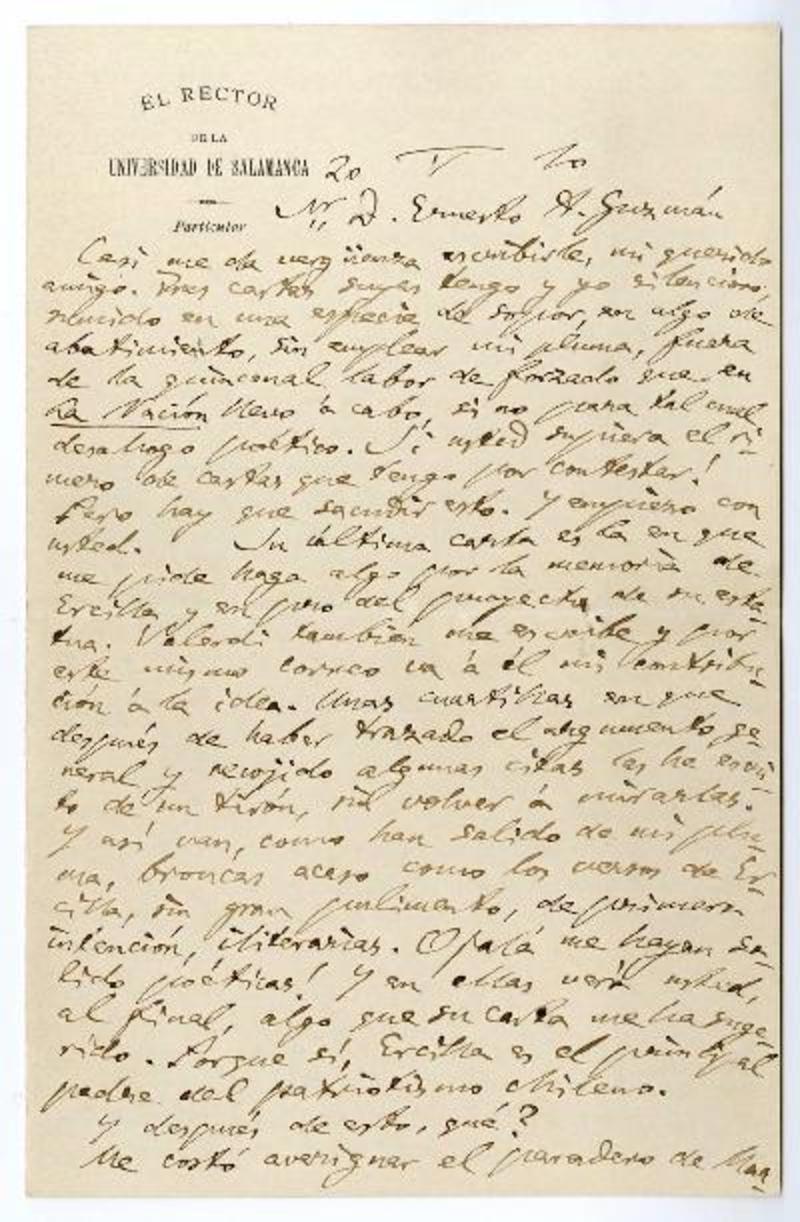 EL RECTOR
DE LA
UNIVERSIDAD DE SALAMANCA
Particular
20 V 10
Sr. D. Ernesto A. Guzmán
Casi me da vergüenza escribirle, mi querido
amigo. Tres cartas suyas tengo y yo silencioso,
sumido en una especie de sopor, en algo de
abatimiento, sin emplear mi pluma, fuera
de la quincenal labor de forzado que en
La Nación llevo á cabo, si no para tal cual
desahogo poético. Si usted supiera el ri-
mero de cartas que tengo por contestar!
Pero hay que sacudir esto. Y empiezo con
usted. Su última carta es la en que
me pide haga algo por la memoria de
Ercilla y en pro del proyecto de su esta-
tua. Valerdi también me escribe y por
este mismo correo va á él mi contribu-
ción á la idea. Unas cuartillas en que
después de haber trazado el argumento ge-
neral y recojido algunas citas las he escri-
to de un tirón, sin volver á mirarlas.
Y así van, como han salido de mi plu-
ma, broncas acaso como los versos de Er-
cilla, sin gran pulimento, de primera
intención, iliterarias. Ojalá me hayan sa-
lido poéticas! Y en ellas verá usted,
al final, algo que su carta me ha suge-
rido. Porque sí, Ercilla es el principal
padre del patriotismo chileno.
Y después de esto, qué?
Me costó averiguar el paradero de